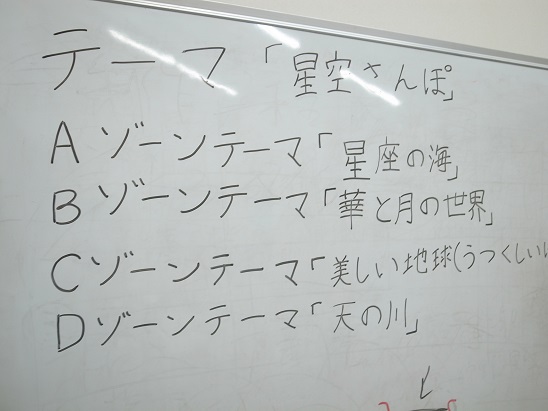 テーマ「星空さんぽ」
Aゾーンテーマ「星座の海」
Bゾーンテーマ「華と月の世界」
Cゾーンテーマ「美しい地球(うつくしい
Dゾーンテーマ「天の川」